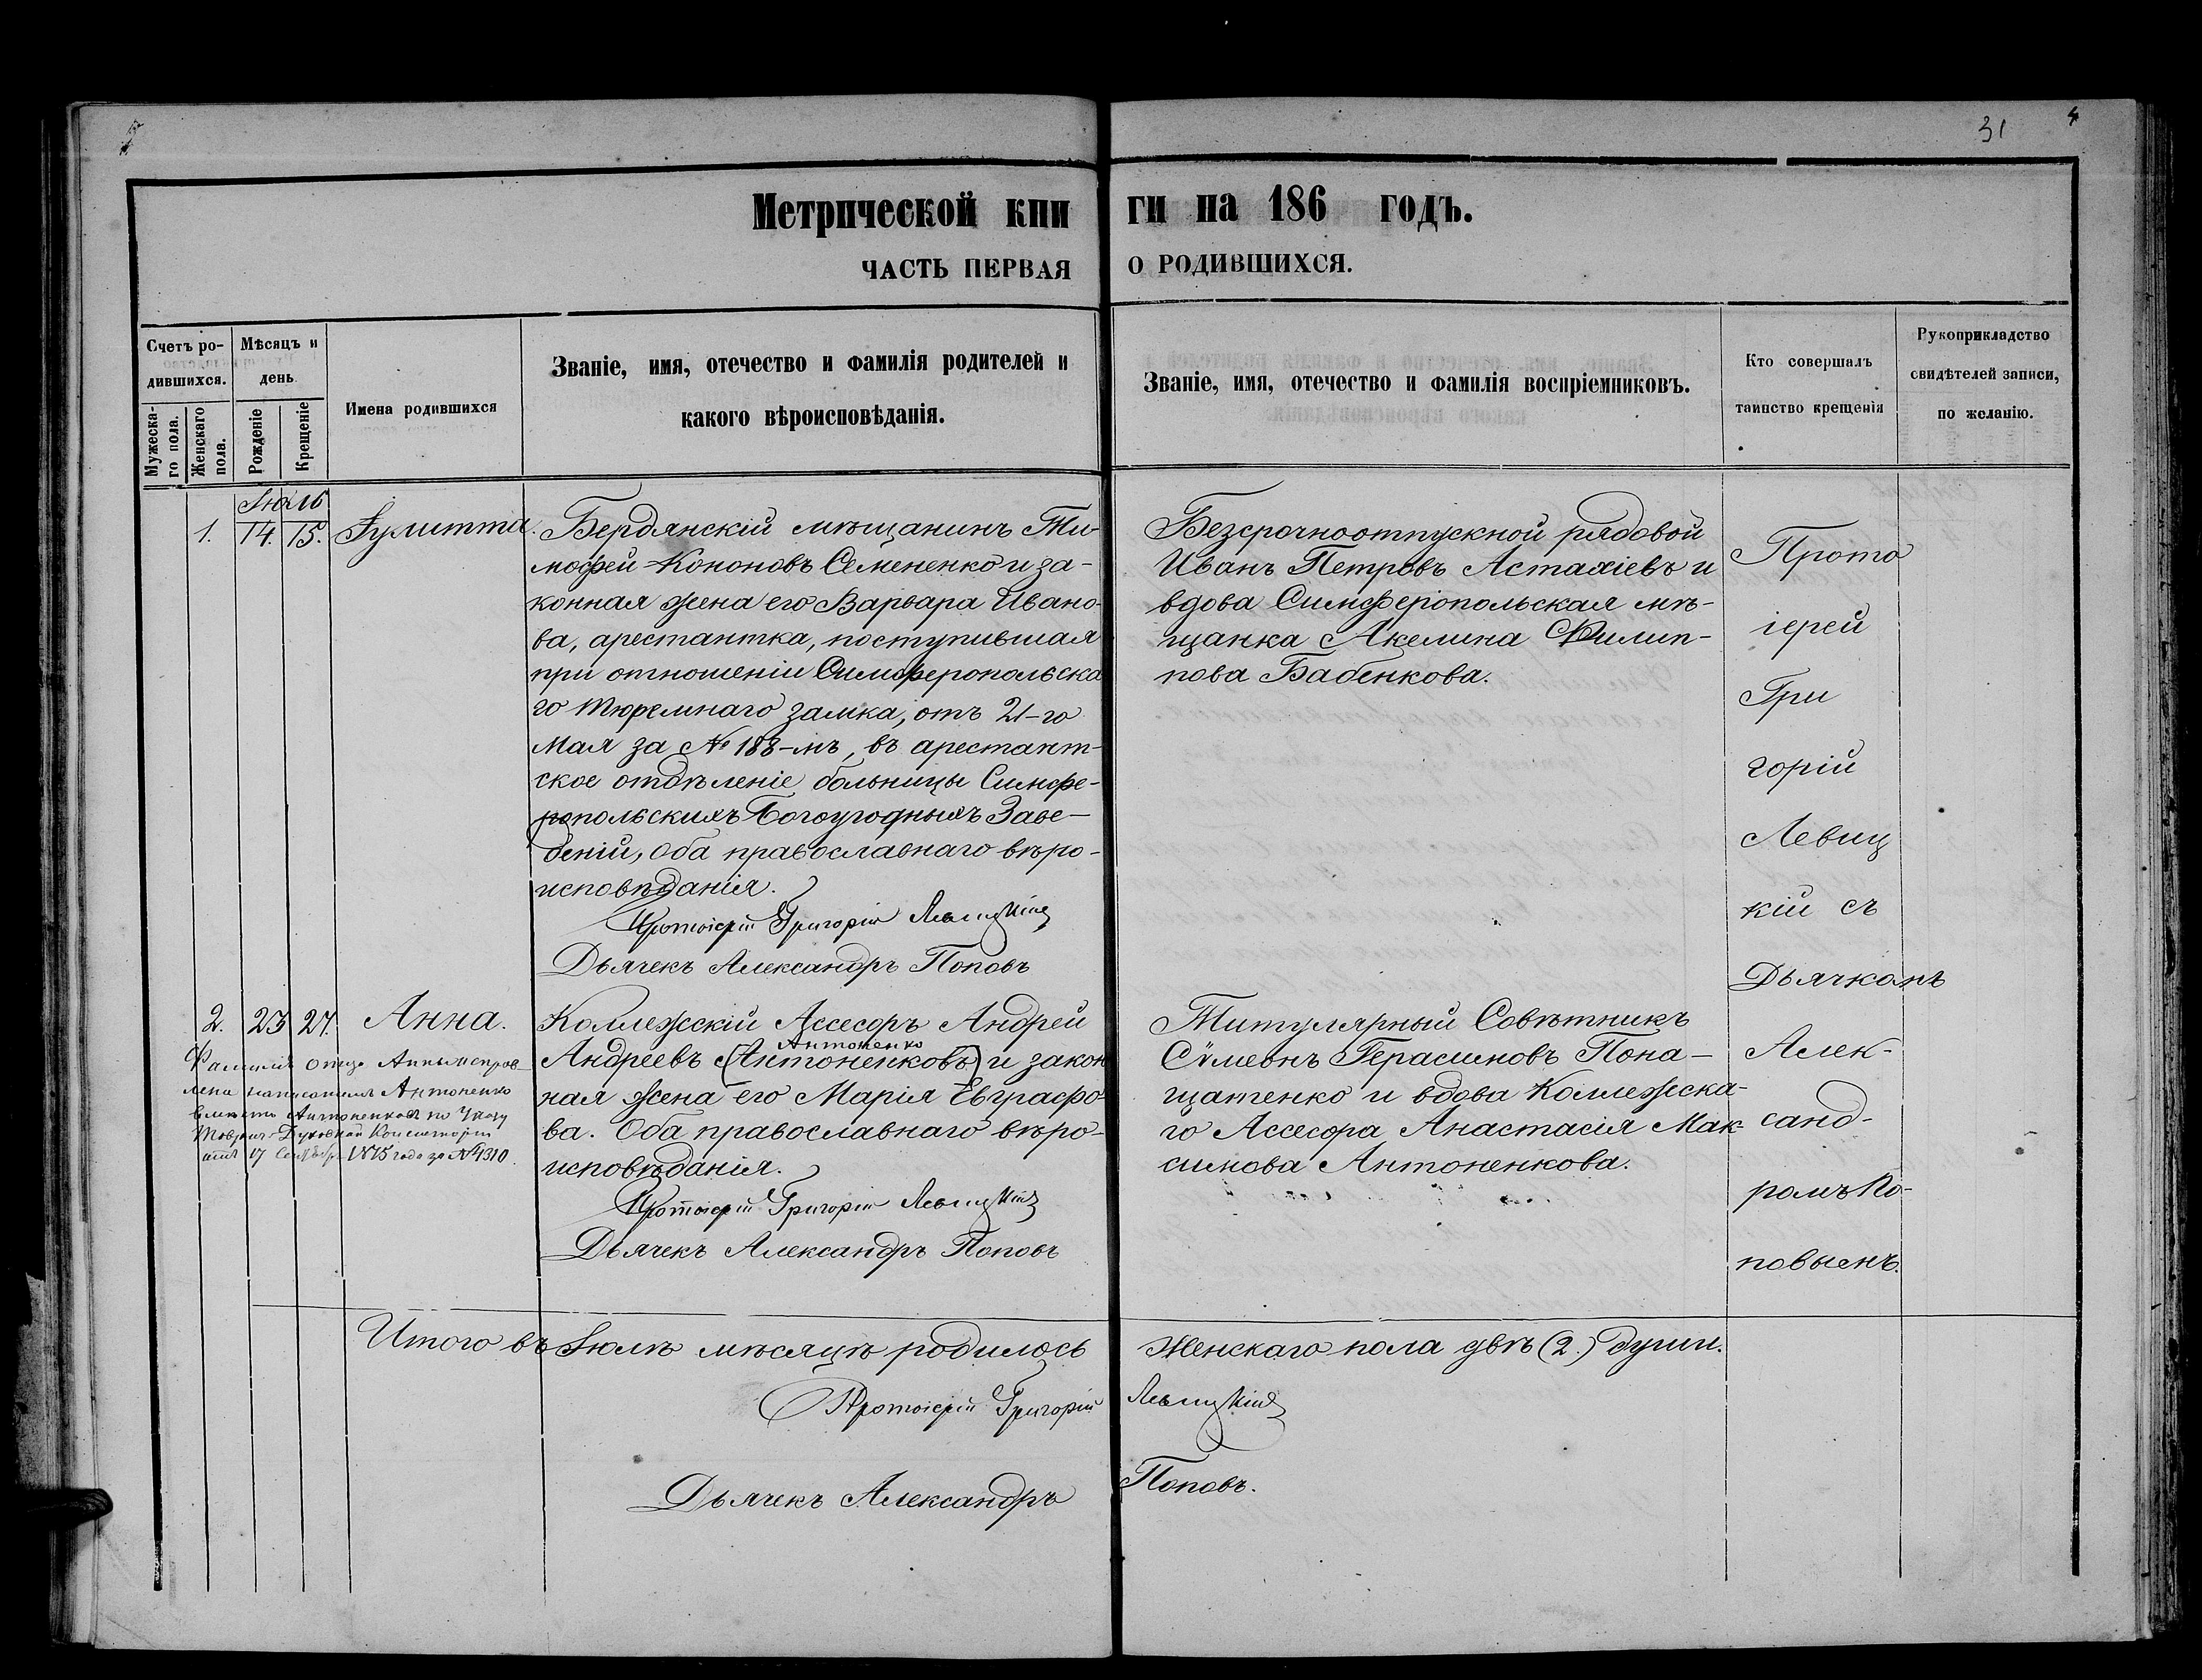 31
4
Метрической кни ги на 186 годъ.
ЧАСТЬ ПЕРВАЯ О РОДИВШИХСЯ.
Счетъ ро-
дившихся.
Мужеска-
го пола.
Женскаго
пола.
Мѣсяцъ и
день
Рожденіе
Крещеніе
Имена родившихся
Званіе, имя, отечество и фамилія родителей и
какого вѣроисповѣданія.
Званіе, имя, отечество и фамилія воспріемниковъ.
Кто совершалъ
таинство крещенія
Рукоприкладство
свидѣтелей записи,
по желанію.
Іюль
1. 14. 15. Іулитта.
Бердянскій мѣщанинъ Ти-
мофей Кононовъ Семененко и за-
конная жена его Варвара Ивано-
ва, арестантка, поступившая
при отношеніи Симферопольска
го тюремнаго замка, отъ 21-го
Мая за № 188-мъ, въ арестант-
ское отдѣленіе больницы Симфе-
ропольскихъ Богоугодныхъ Заве-
деній, оба православнаго вѣро-
исповѣданія.
Протоіерій Григорій Левицкій
Дьячекъ Александръ Поповъ
Безсрочноотпускной рядовой
Иванъ Петровъ Астахіевъ и
вдова Симферіопольская мѣ-
щанка Акелина Филип-
пова Бабенкова.
Прото
іерей
Гри
горій
Левиц
кій съ
Дьячкомъ
Алек-
санд-
ромъ По-
повымъ.
2. 23 27. Анна.
Фамилія отца Анны исправ-
лена написаніемъ Антоненко
вмѣсто Антоненковъ по Указу
Таврич. Духовной Консисторіи
отъ 17 Сентябр. 1875 года за № 4310.
Коллежскій Ассесоръ Андрей
Антоненко
Андреевъ (Антоненковъ) и закон
ная жена его Марія Евграфо-
ва. Оба православнаго вѣро-
исповѣданія.
Протоіерій Григорій Левицкій
Дьячекъ Александръ Поповъ
Титулярный Совѣтникъ
Сѵмеонъ Герасимовъ Пона-
щатенко и вдова Коллежска-
го Ассесора Анастасія Мак-
симова Антоненкова.
Итого въ Іюлѣ мѣсяцѣ родилось Женскаго пола двѣ (2.) души.
Протоіерій Григорій Левицкій
Дьячекъ Александръ Поповъ.